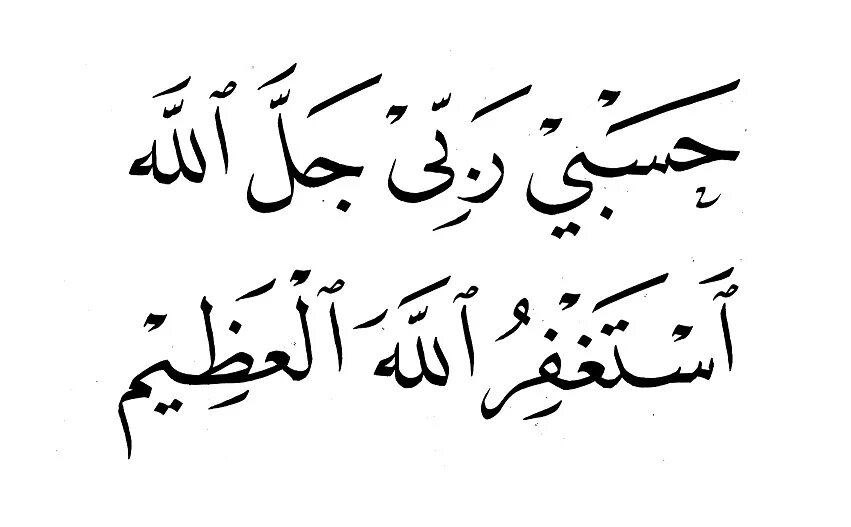 حَسْبِيْ رَبِّيْ جَلَّ ٱللَّه
ٱَسْتَغْفِرُ ٱللَّهَ ٱلْعَظِيْم